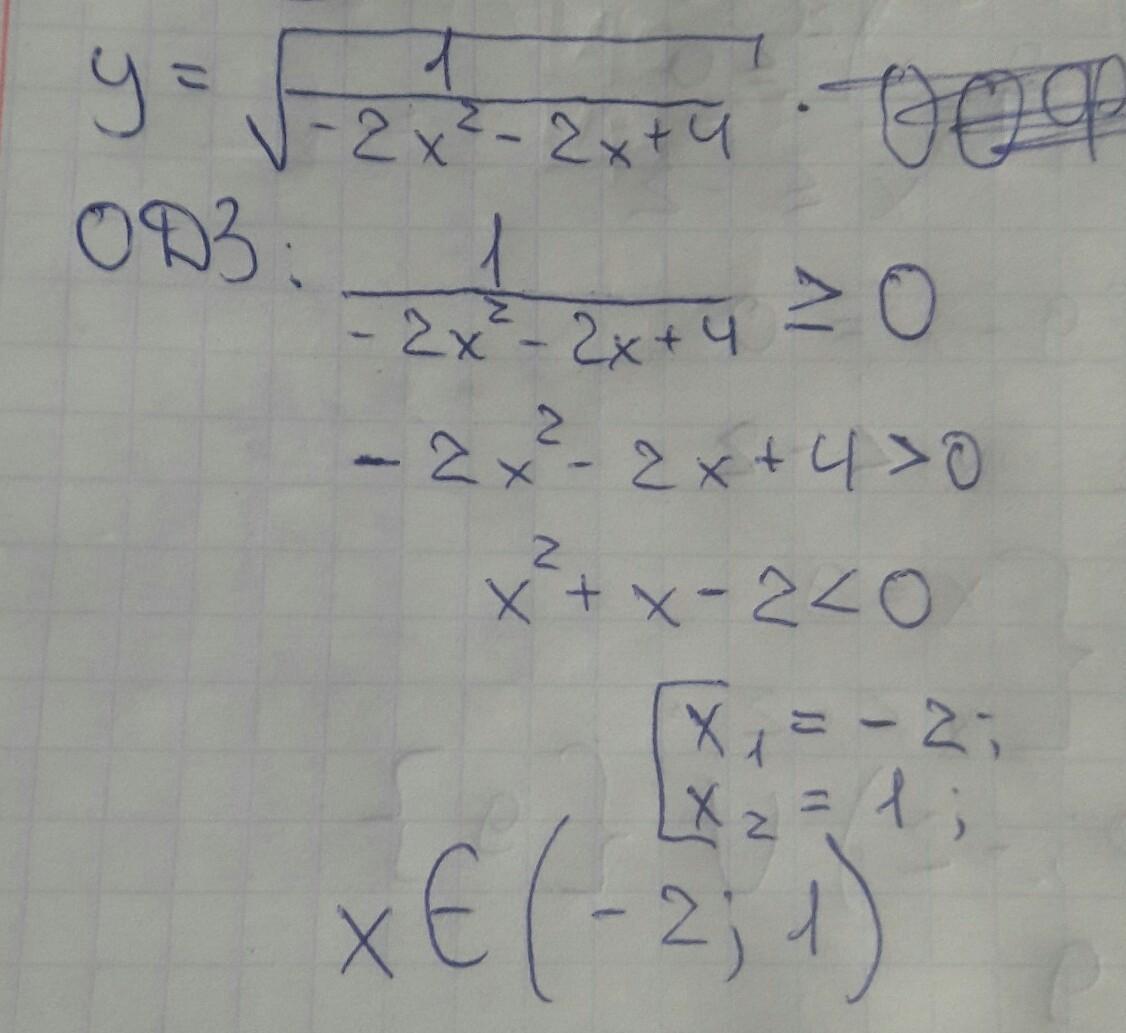 y = √(1/(-2x² - 2x + 4)) ·
ОДЗ: 1/(-2x² - 2x + 4) ≥ 0
-2x² - 2x + 4 > 0
x² + x - 2 < 0
[x₁ = -2;
x₂ = 1;
x ∈ (-2; 1)